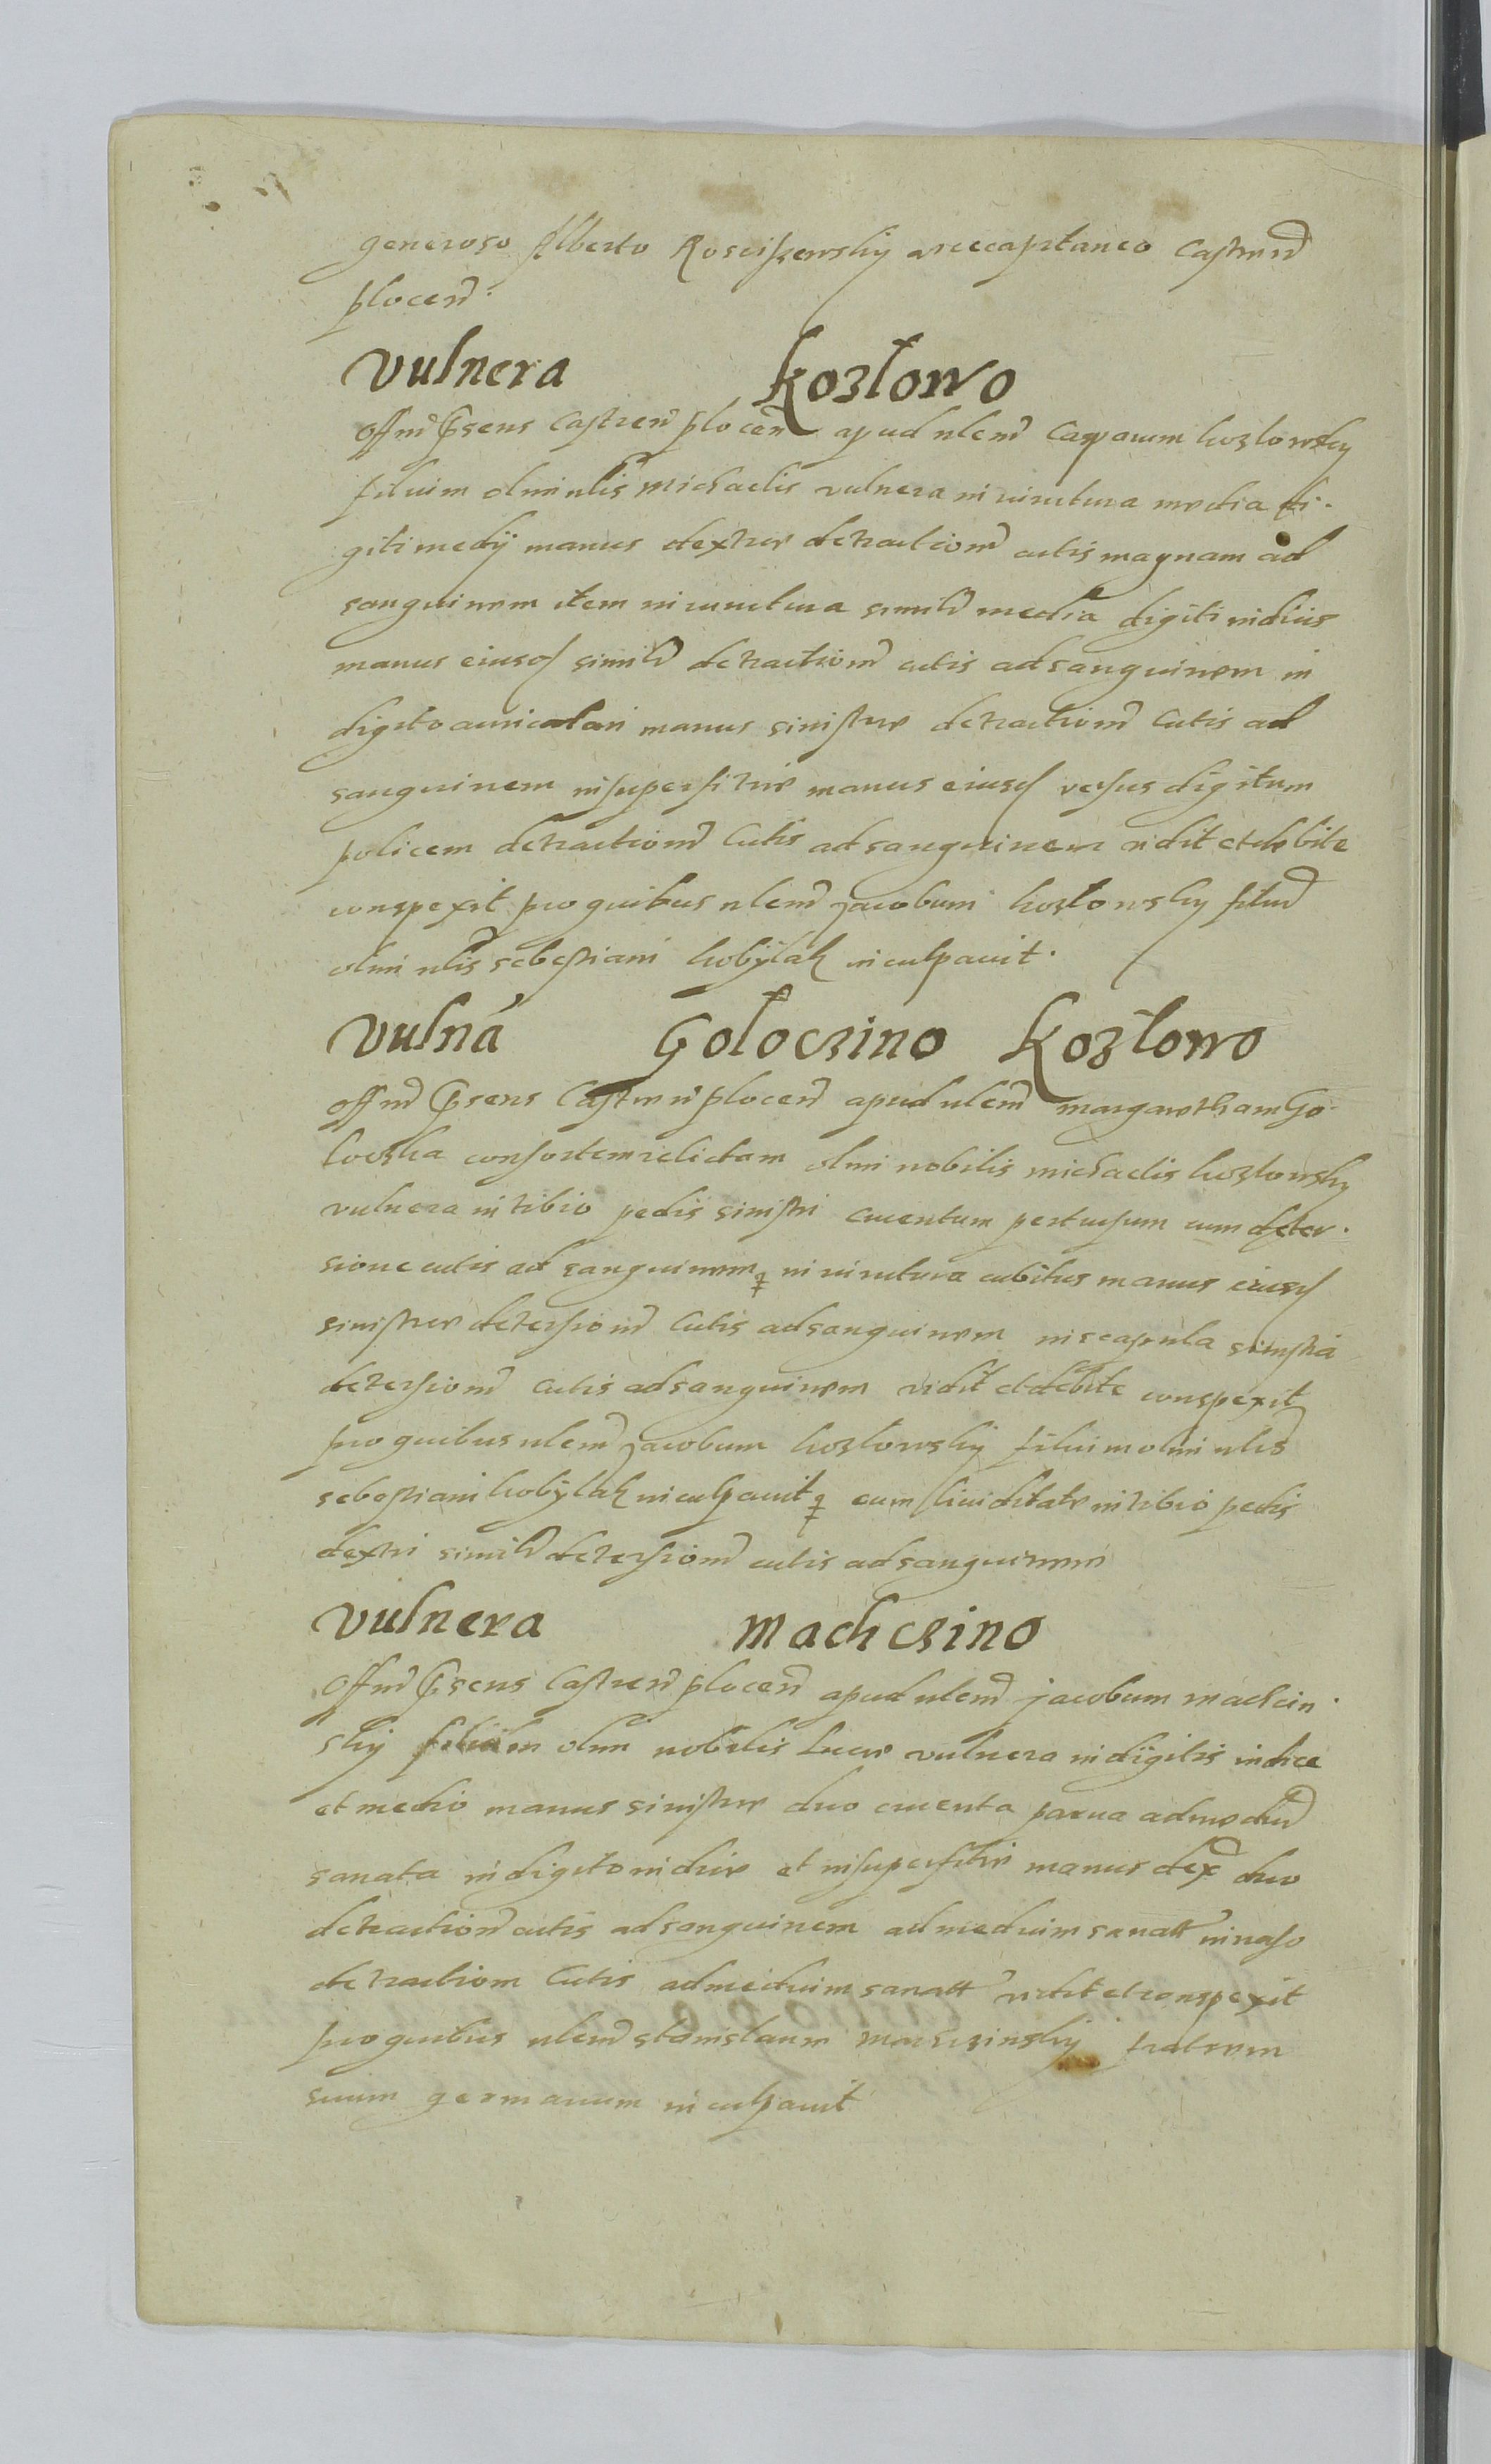 generoso Alberto Roscissewsky vicecapitaneo Castren
plocen.
vulnera kozlowo
Offm p̃sens Castren plocen apud nlem Casparum kozlowsky
filium olim nlis Michaelis vulnera in iunctura media di-
giti medij manus dextre detractiom cutis magnam ad
sanguinem item in iunctura simili media digiti indicis
manus eiusd simile detractiom cutis ad sanguinem in
digito auriculari manus sinistre detractiom Cutis ad
sanguinem in superficie manus eiusd versus digitum
policem detractiom Cutis ad sanguinem vidit et debite
conspexit pro quibus nlem Jacobum kozlowsky filiu
olim nlis sebestiani kobÿlak inculpauit.
Vulna Goloczino Kozlowo
Offm p̃sens Castren plocen apud nlem margaretham Go-
loczka consortem relictam olim nobilis michaelis kozlowsky
vulnera in tibio pedis sinistri cruentum pertusum cum deter-
sione cutis ad sanguinem in iunctura cubitus manus eiusd
sinistre detersiom Cutis ad sanguinem in scapula sinistra
detersiom cutis ad sanguinem vidit et debite conspexit
pro quibus nlem Jacobum kozlowsky filium olim nlis
sebestiani kobÿlak inculpauit cum liuiditate in tibio pedis
dextri simile detersiom cutis ad sanguinem
vulnera Machczino
Offm p̃sens Castren plocen apud nlem jacobum machcin-
sky filium olim nobilis Luce vulnera in digitis indice
et medio manus sinistre duo cruenta parua ad mediu
sanata in digito indice et in superficie manus dex duo
detraction cutis ad sanguinem ad medium sanatt in naso
detractiom Cutis ad medium sanatt vidit et conspexit
pro quibus nlem stanislaum machczinsky fratrem
suum germanum inculpauit